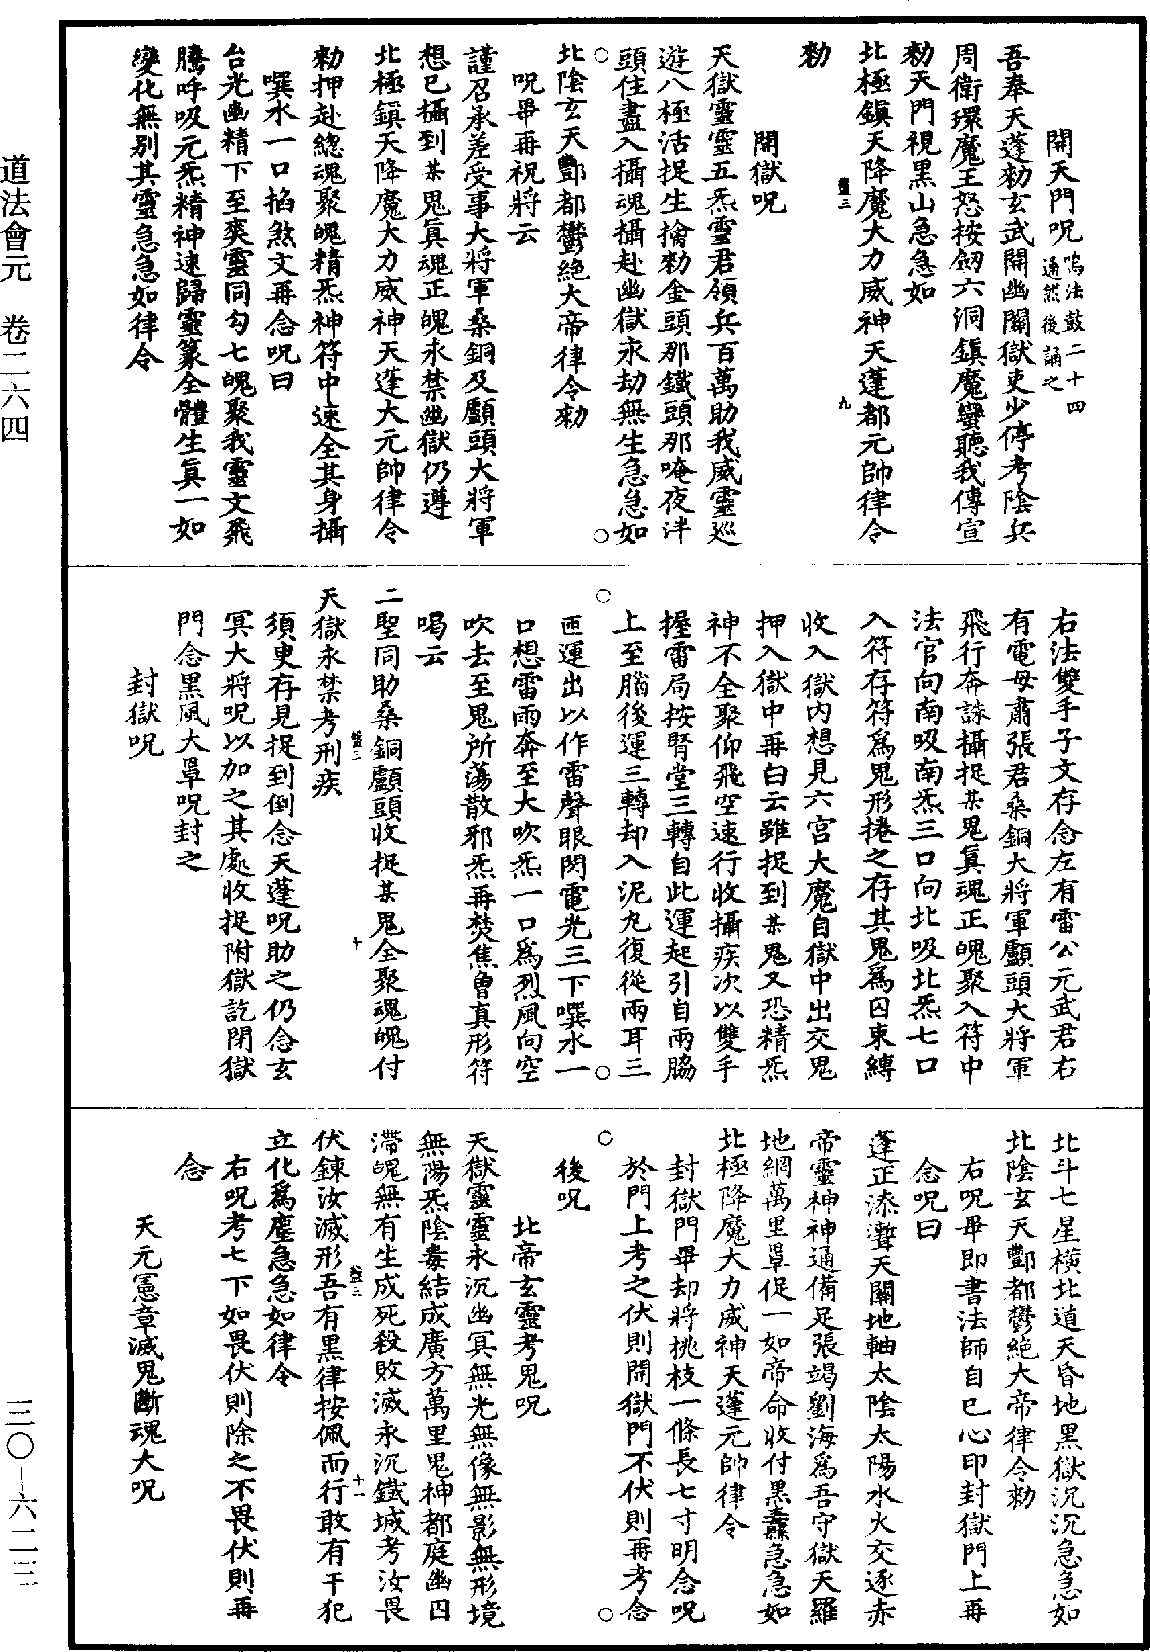 開天門呪鳴法鼓二十四通然後誦之
吾奉天蓬勑玄武開幽關獄吏少停考陰兵
周衛環魔王怒按劒六洞鎮魔蠻聽我傳宣
勑天門視黑山急急如
北極鎮天降魔大力威神天蓬都元帥律令
勑
開獄呪
天獄靈靈五炁靈君領兵百萬助我威靈巡
遊八極活捉生擒勑金頭那鐵頭那唵夜泮
頭住盡入攝魂攝赴幽獄永劫無生急急如
北陰玄天酆都鬱絕大帝律令勑
呪畢再祝將云
謹召承差受事大將軍桑銅及顱頭大將軍
想已攝到某鬼真魂正魄永禁幽獄仍遵
北極鎮天降魔大力威神天蓬大元帥律令
勑押赴總魂聚魄精炁神符中速全其身攝
噀水一口掐煞文再念呪曰
台光幽精下至爽靈同勾七魄聚我靈文飛
騰呼吸元炁精神速歸靈篆全體生真一如
變化無別其靈急急如律令
右法雙手子文存念左有雷公元武君右
有電母肅張君桑銅大將軍顱頭大將軍
飛行奔誅攝捉某鬼真魂正魄聚入符中
法官向南吸南炁三口向北吸北炁七口
入符存符爲鬼形捲之存其鬼爲囚束縛
收入獄內想見六宮大魔自獄中出交鬼
押入獄中再白云雖捉到某鬼又恐精炁
神不全聚仰飛空速行收攝疾次以雙手
握雷局按腎堂三轉自此運起引自兩脇
上至腦後運三轉却入泥丸復從兩耳三
匝運出以作雷聲眼閃電光三下噀水一
口想雷雨奔至大吹炁一口爲烈風向空
吹去至鬼所蕩散邪炁再焚焦曾真形符
喝云
二聖同助桑銅顱頭收捉某鬼全聚魂魄付
天獄永禁考刑疾
須臾存見捉到倒念天蓬呪助之仍念玄
冥大將呪以加之其處收捉附獄訖閉獄
門念黑風大罩呪封之
封獄呪
北斗七星橫北道天昏地黑獄沉沉急急如
北陰玄天酆都鬱絕大帝律令勑
右呪畢即書法師自己心印封獄門上再
念呪曰
蓬正漆灊天關地軸太陰太陽水火交逐赤
帝靈神神通備足張竭劉海爲吾守獄天羅
地網萬里罩促一如帝命收付黑纛急急如
北極降魔大力威神天蓬元帥律令
封獄門畢却將桃枝一條長七寸明念呪
於門上考之伏則開獄門不伏則再考念
後呪
北帝玄靈考鬼呪
天獄靈靈永沉幽冥無光無像無影無形境
無陽炁陰毒結成廣方萬里鬼神都庭幽囚
滯魄無有生成死殺敗滅永沉鐵城考汝畏
伏鍊汝滅形吾有黑律按佩而行敢有干犯
立化爲塵急急如律令
右呪考七下如畏伏則除之不畏伏則再
念
天元憲章滅鬼斷魂大呪
道法會元　卷二六四
三〇－六二三